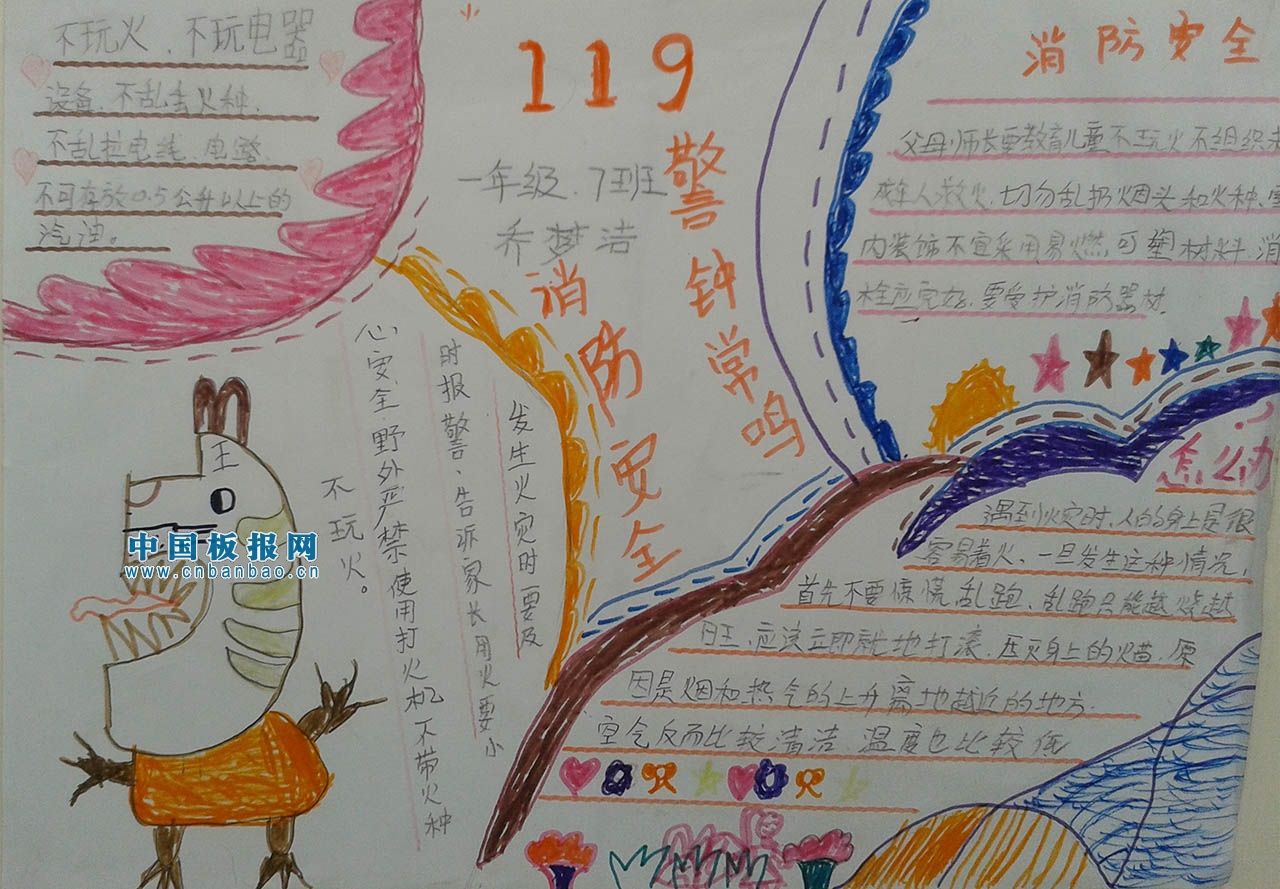 不玩火、不玩电器
设备、不乱丢火种、
不乱拉电线、电路、
不可存放0.5公升以上的
汽油。
119
警钟常鸣
一年级、7班
乔梦洁
消防安全
消防安全
父母师长要教育儿童不玩火不组织未
成年人救火,切勿乱扔烟头和火种、室
内装饰不宜采用易燃,可塑材料,消
栓应完好,要爱护消防器材.
发生火灾时要及
时报警、告诉家长用火要小
心安全野外严禁使用打火机不带火种
不玩火。
怎么办
遇到火灾时,人的身上是很
容易着火、一旦发生这种情况,
首先不要惊慌乱跑、乱跑只能越烧越
旺,应该立即就地打滚,压灭身上的火苗,原
因是烟和热气的上升离地越近的地方
空气反而比较清洁、温度也比较低
中国板报网
www.cnbanbao.cn
王